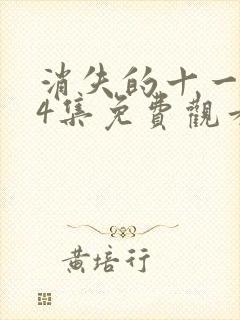 消失的十一
4集免費觀看
黄培行